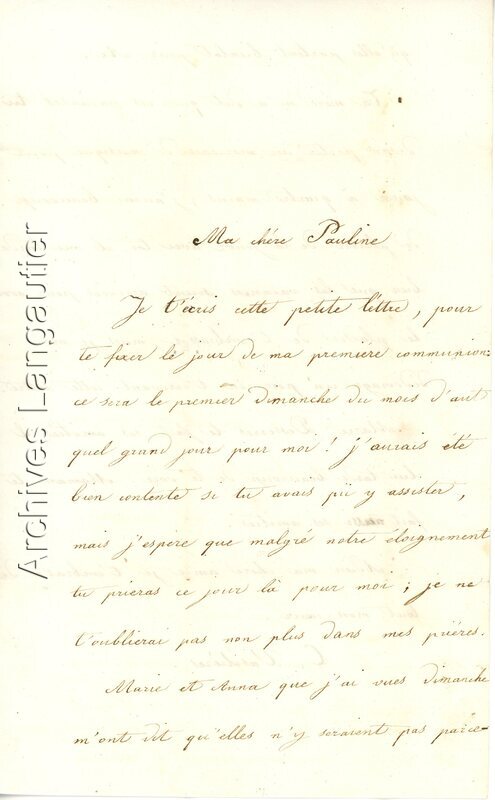 Ma chére Pauline
Je t'écris cette petite lettre, pour
te fixer le jour de ma premiére communion:
ce sera le premier dimanche du mois d'aut
quel grand jour pour moi ! j'aurais été
bien contente si tu avais pu y assister,
mais j'espere que malgré notre éloignement
tu prieras ce jour là pour moi ; je ne
t'oublierai pas non plus dans mes priéres.
Marie et Anna que j'ai vues dimanche
m'ont dit qu'elles n'y seraient pas parce-
Archives Langautier